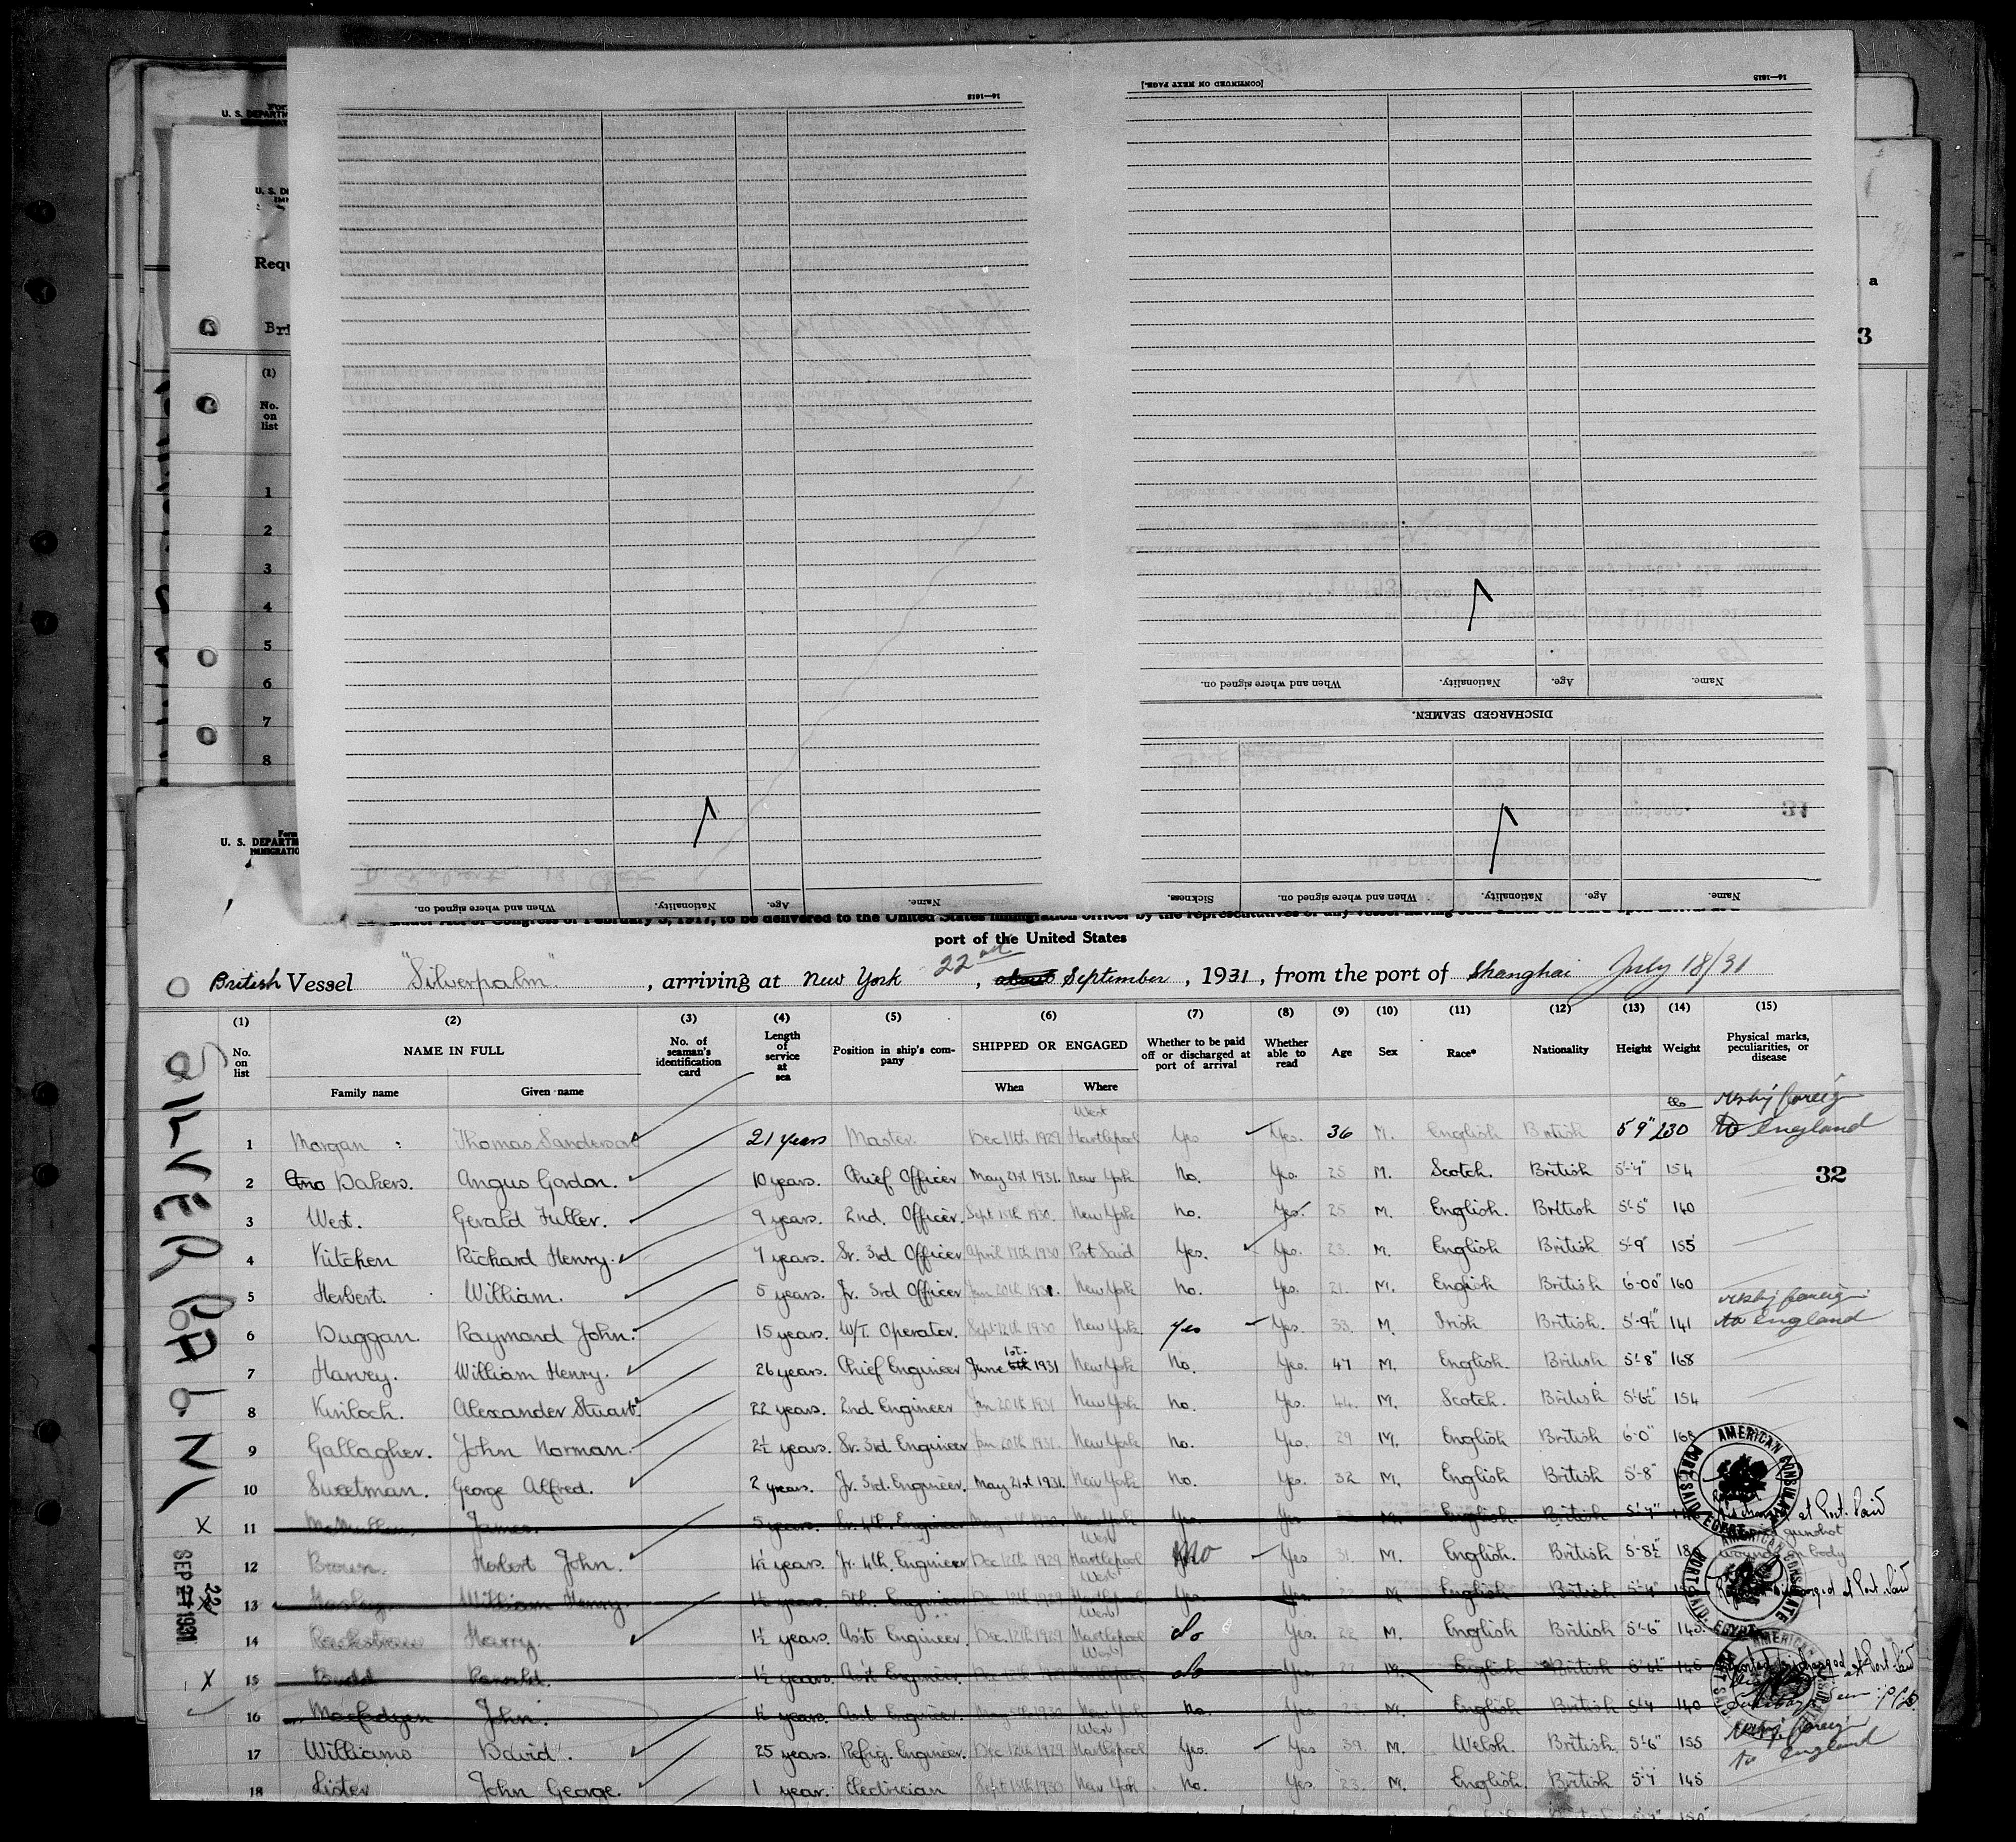 U. S. DEPARTM
Requ
Bri
(1)
No.
on
list
1
2
3
4
5
6
7
8
a
3
16—1618
[CONTINUED ON NEXT PAGE.]
16—1618
Name. Age. Nationality. When and where signed on.
DISCHARGED SEAMEN.
Name. Age. Nationality. When and where signed on. Sickness.
Name. Age. Nationality. When and where signed on.
Form
U. S. DEPARTM
IMMIGRATIO
under Act of Congress of February 5, 1917, to be delivered to the United States immigration officer by the representatives of any vessel having such aliens on board upon arrival at a
port of the United States
British Vessel "Silverpalm", arriving at New York 22nd, about September, 1931, from the port of Shanghai July 18/31
(1) (2) (3) (4) (5) (6) (7) (8) (9) (10) (11) (12) (13) (14) (15)
No. on list NAME IN FULL No. of seaman's identification card Length of service at sea Position in ship's company SHIPPED OR ENGAGED Whether to be paid off or discharged at port of arrival Whether able to read Age Sex Race* Nationality Height Weight Physical marks, peculiarities, or disease
Family name Given name When Where
SILVER PALM
lbs
1 Morgan Thomas Sanderson 21 years Master Dec 11th 1929 West Hartlepool Yes Yes. 36 M. English British 5'9" 230 reship foreign to England
2 Dakers. Angus Gordon. 10 years. Chief Officer May 21st 1931. New York No. Yes. 25 M. Scotch. British 154
32
3 West. Gerald Fuller. 9 years. 2nd. Officer. Sept 1930. New York No. Yes. 25 M. English. British 5'-5" 140
4 Kitchen Richard Henry. 7 years. Sr. 3rd Officer April 17th 1930 Port Said Yes. Yes. 23. M. English British 5'-9" 155
5 Herbert. William. 5 years. Jr. 3rd Officer Jan 20th 1931. New York No. Yes. 21. M. English British 6'-00" 160
6 Duggan. Raymond John. 15 years. W/T. Operator. Sept 12th 1930 New York Yes Yes. 33. M. Irish British. 5'-9½" 141 reship foreign to England
7 Harvey. William Henry. 26 years. Chief Engineer June 1st. 1931 New York No. Yes. 47 M. English. British 5'-8" 168
8 Kinloch. Alexander Stuart. 22 years. 2nd Engineer Jan 20th 1931 New York No. Yes. 44. M. Scotch. British 5'-6½" 154
9 Gallagher. John Norman. 2½ years. Sr. 3rd Engineer Jan 20th 1931. New York No. Yes. 29 M. English British 6'-0" 168
10 Sweetman. George Alfred. 2 years. Jr. 3rd. Engineer. May 21st 1931. New York No. Yes. 32 M. English British 5'-8"
X 11 McMullen James. 5 years. Sr. 4th. Engineer New York Yes. Yes M. English. British 5'-7" Discharged at Port Said
12 Brown. Herbert John. 4½ years. Jr. 4th. Engineer Dec 12th 1929 West Hartlepool No Yes 31. M. English. British 5'-8½" gunshot wounds on body
X 13 William Henry. 1½ years. 5th. Engineer Dec 12th 1929 West Hartlepool Yes. Yes M. English British 5'-4" Discharged at Port Said
14 Harry. 1½ years. Asst. Engineer. Dec. 12th 1929 West Hartlepool do Yes. 22 M. English British 5'-6" 145.
X 15 Budd Ronald. 1½ years. Asst Engineer. West Hartlepool do Yes M. English British 145 discharged at Port Said
16 Macfadyen John. 1½ years. Asst. Engineer. New York No. Yes 23 M. English British 5'-7 140
17 Williams David. 25 years. Refrig. Engineer. Dec 12th 1929 West Hartlepool Yes. Yes 39. M. Welsh. British. 5'-6" 155 reship foreign to England
18 Lister John George. 1 year. Electrician Sept 18th 1930 New York No. Yes. 23. M. English. British 5'-7 145
SEP 22 1931
AMERICAN CONSULATE PORT SAID, EGYPT
AMERICAN CONSULATE PORT SAID, EGYPT
AMERICAN